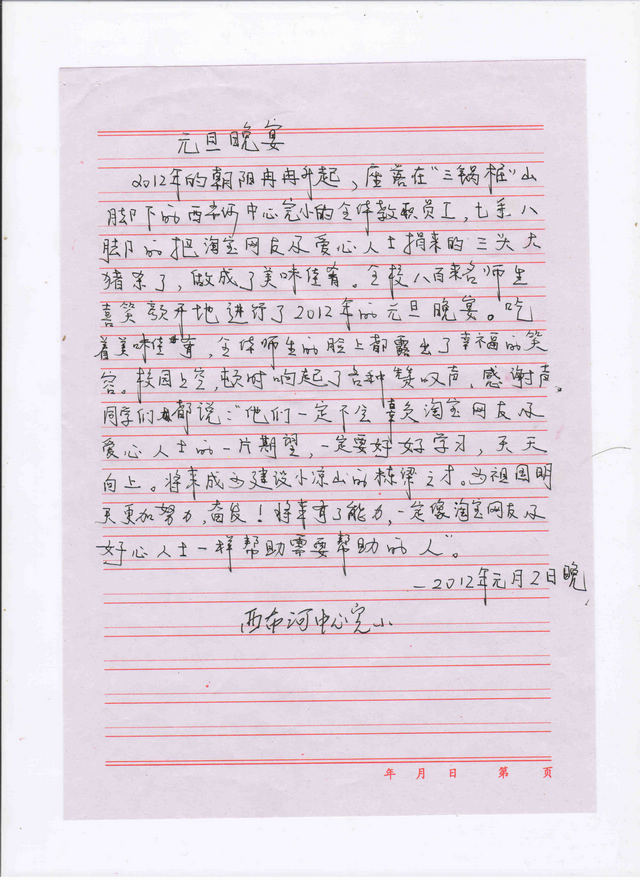 元旦晚宴
2012年的朝阳冉冉升起，座落在“三锅桩”山
脚下的西布河中心完小的全体教职员工，七手八
脚的把淘宝网友及爱心人士捐来的三头大
猪杀了，做成了美味佳肴。全校八百来名师生
喜笑颜开地进行了2012年的元旦晚宴。吃
着美味佳肴，全体师生的脸上都露出了幸福的笑
容。校园上空，顿时响起了各种赞叹声，感谢声。
同学们都说：“他们一定不会辜负淘宝网友及
爱心人士的一片期望，一定要好好学习，天天
向上。将来成为建设小凉山的栋梁之才。为祖国明
天更加努力，奋发！将来有了能力，一定像淘宝网友及
好心人士一样帮助需要帮助的人”。
—2012年元月2日晚
西布河中心完小
年 月 日 第 页